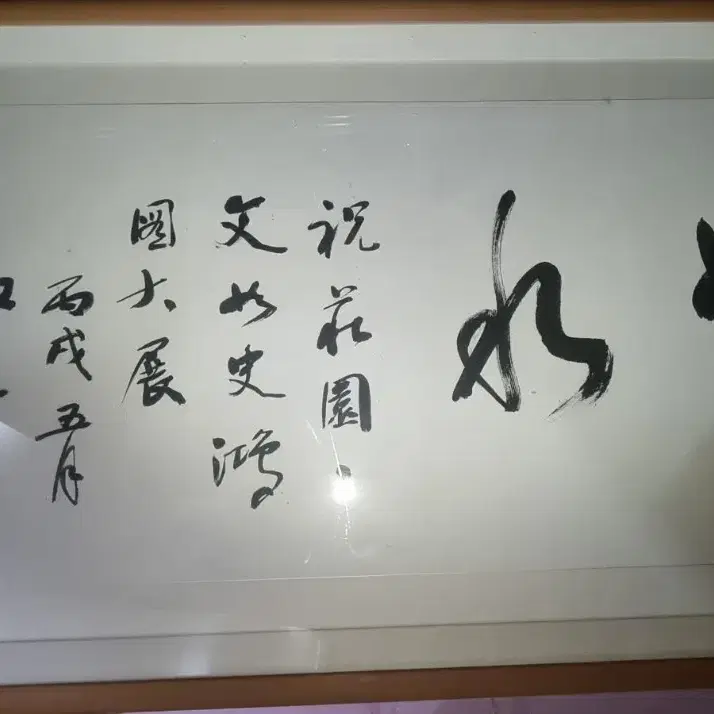 水
祝莊園、
文女史鴻
圖大展
丙戌五月